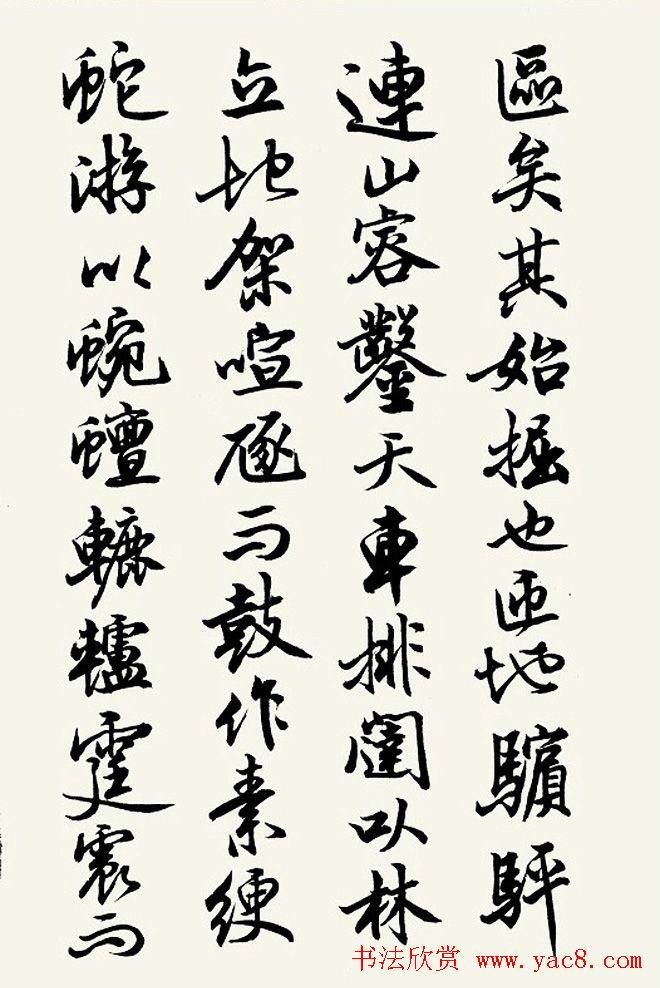 區矣其始掘也匝地驞駍
連山容鑿天車排闥以林
立地架喧豗而鼓作素綆
蛇游以蜿蟺轆轤霆震而
书法欣赏 www.yac8.com